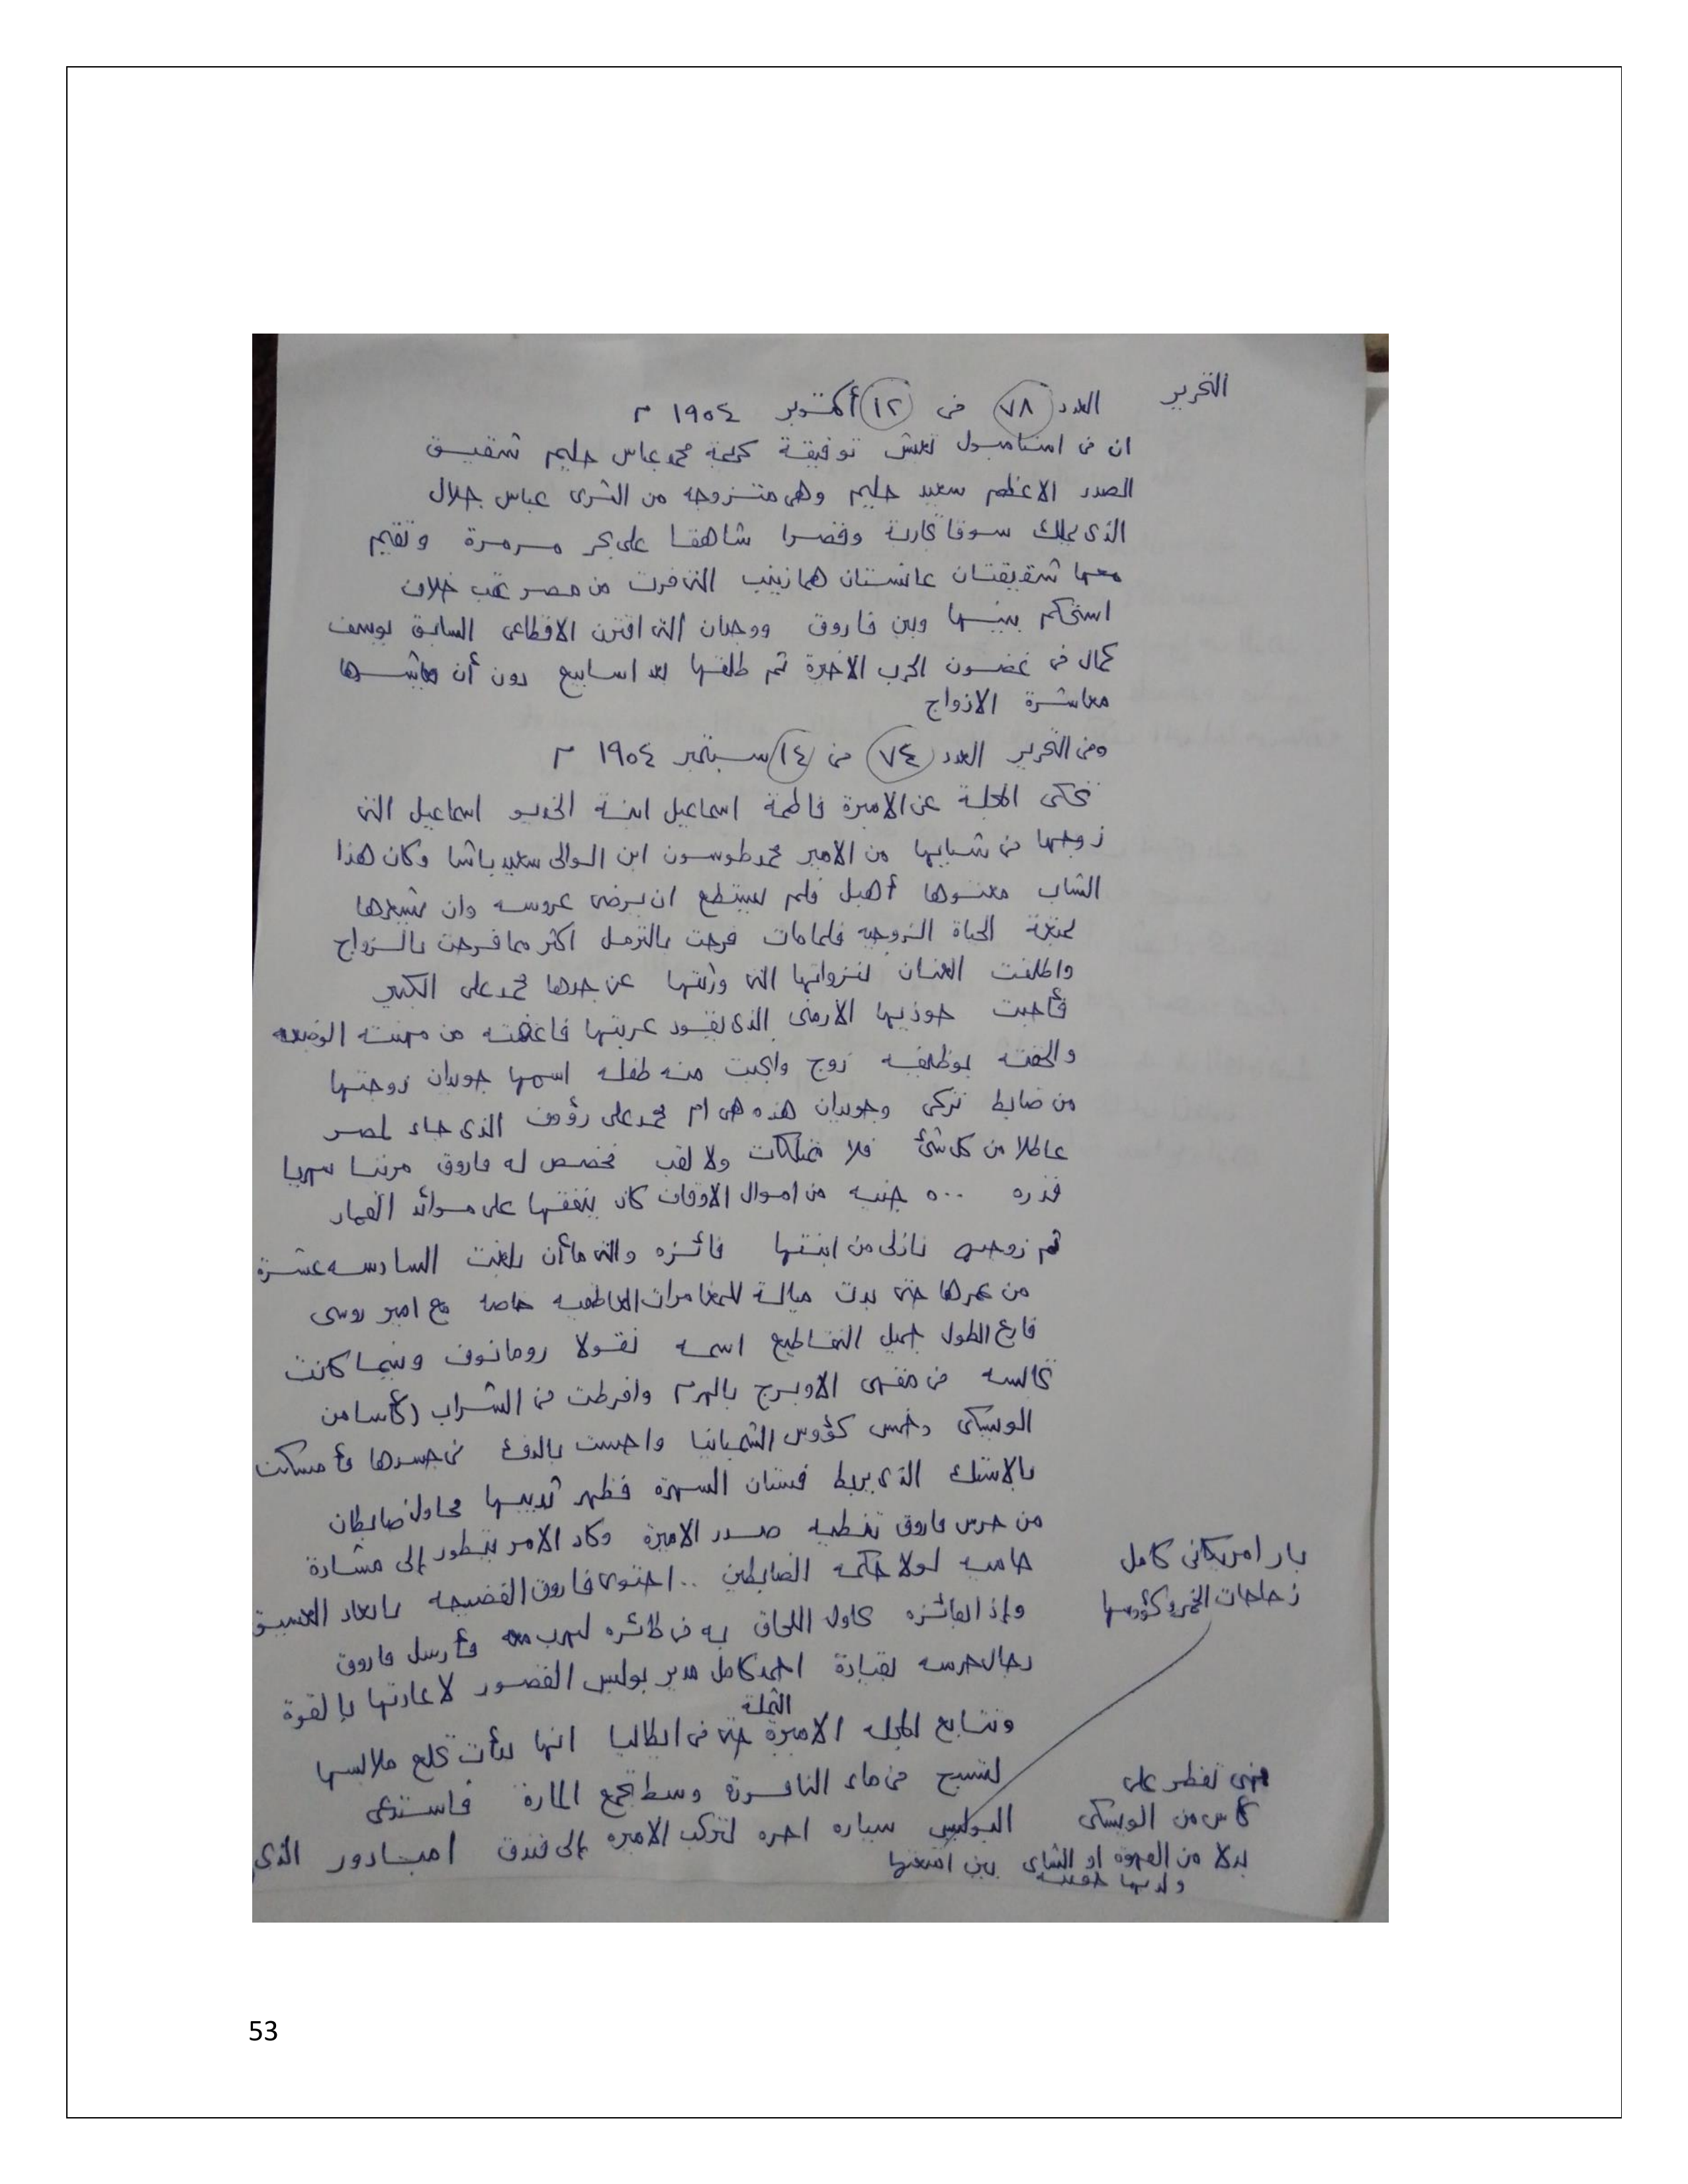 التحرير العدد ٧٨ فى ١٢ أكتوبر ١٩٥٤ م
ان فى استامبول تعيش توفيقة كريمة محمد عباس حليم شقيق
الصدر الاعظم سعيد حليم وهى متزوجة من الثرى عباس جلال
الذى يملك سوقا تجارية وقصرا شاهقا على بحر مرمرة وتقيم
معها شقيقتان عانستان هما زينب التى فرت من مصر عقب خلاف
استحكم بينها وبين فاروق ووجدان التى اقترن الاقطاعى السابق يوسف
كمال فى غضون الحرب الاخيرة ثم طلقها بعد اسابيع دون أن يعاشرها
معاشرة الازواج
وفى التحرير العدد ٧٤ فى ١٤ سبتمبر ١٩٥٤ م
تحكى المجلة عن الاميرة فاطمة اسماعيل ابنة الخديو اسماعيل التى
زوجها فى شبابها من الامير محمد طوسون ابن الوالى سعيد باشا وكان هذا
الشاب معتوها أهبل فلم يستطع ان يرضى عروسه وان يشعرها
بمتعة الحياة الزوجيه فلما مات فرحت بالترمل اكثر مما فرحت بالزواج
واطلقت العنان لنزواتها التى ورثتها عن جدها محمد على الكبير
فأحبت حوذيها الارمنى الذى يقود عربتها فاعفته من مهنته الوضيعه
والحقته بوظيفه زوج وانجبت منه طفله اسمها جويدان زوجتها
من ضابط تركى وجويدان هذه هى ام محمد على رؤوف الذى جاء لمصر
عاطلا من كل شئ فلا ممتلكات ولا لقب فخصص له فاروق مرتبا شهريا
قدره ٥٠٠ جنيه من اموال الاوقاف كان ينفقها على موائد القمار
ثم زوجته نازلى من ابنتها فائزه والتى ما أن بلغت السادسه عشرة
من عمرها حتى بدت ميالة للمغامرات العاطفيه خاصه مع امير روسى
فارع الطول جميل التقاطيع اسمه نقولا رومانوف وبينما كانت
تجالسه فى مقهى الاوبرج بالهرم وافرطت فى الشراب (كأسا من
الوسيكى وخمس كؤوس الشمبانيا واحست بالدفئ فى جسدها فأمسكت
بالاستك الذى يربط فستان السهرة فظهر ثدييها محاولة ضابطان
من حرس فاروق تغطيه صدر الاميرة وكاد الامر يتطور إلى مشادة
حاميه لولا حكمه الضابطين .. احتوى فاروق الفضيحه بابعاد العشيق
وإذا بفائزه تحاول اللحاق به فى طائره لتهرب معه فأرسل فاروق
رجال حرسه بقيادة احمد كامل مدير بوليس القصور لاعادتها بالقوة
وتتابع المجله الاميرة الثملة حتى فى ايطاليا انها بدأت تخلع ملابسها
لتسبح فى ماء النافورة وسط تجمع المارة فاستدعى
البوليس سياره اجره لتركب الاميره إلى فندق امبادور الذى
بار امريكانى كامل
زجاجات الخمر وكؤوسها
فهى تفطر على
كأس من الويسكى
بدلا من القهوه او الشاى بين امتعتها
ولديها حقيبه
53